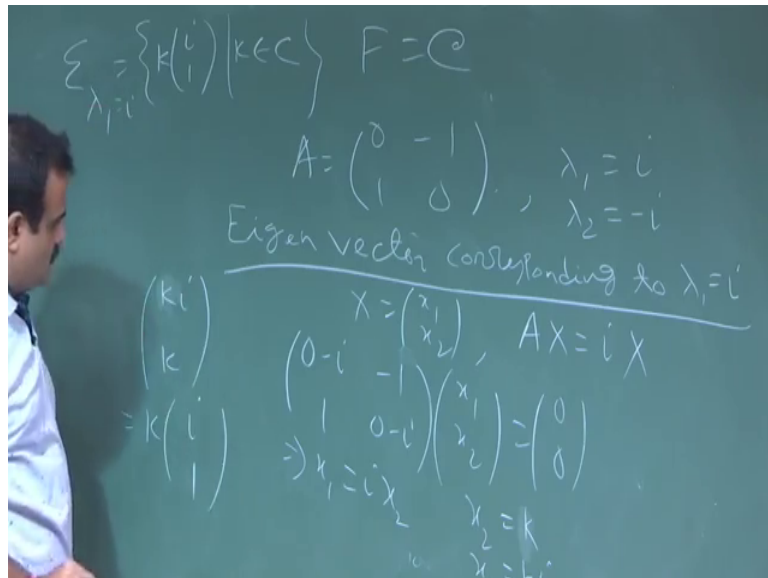 E_{λ₁=i} = {k(i 1) | k∈C} F = C
A = (0 -1 1 0), λ₁ = i
λ₂ = -i
Eigen vector corresponding to λ₁=i
X = (x₁ x₂), AX = iX
(0-i -1 1 0-i)(x₁ x₂) = (0 0)
⇒ x₁ = ix₂
x₂ = k
(ki k)
= k(i 1)